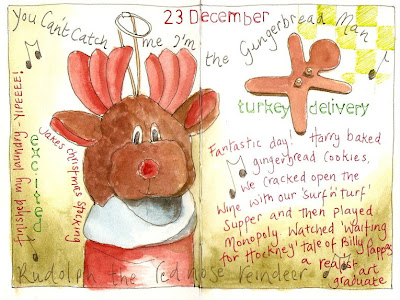 23 December
You Can't Catch me I'm the Gungerbread Man
Finished my laundry - YIPEEEE!
Jakes christmas stocking
turkey delivery
Fantastic day! Harry baked
gingerbread cookies.
We cracked open the
wine with our 'surf'n'turf'
Supper and then played
Monopoly. Watched 'Waiting
for Hockney' tale of Billy Pappas
a realist art
graduate
Rudolph the red nose reindeer